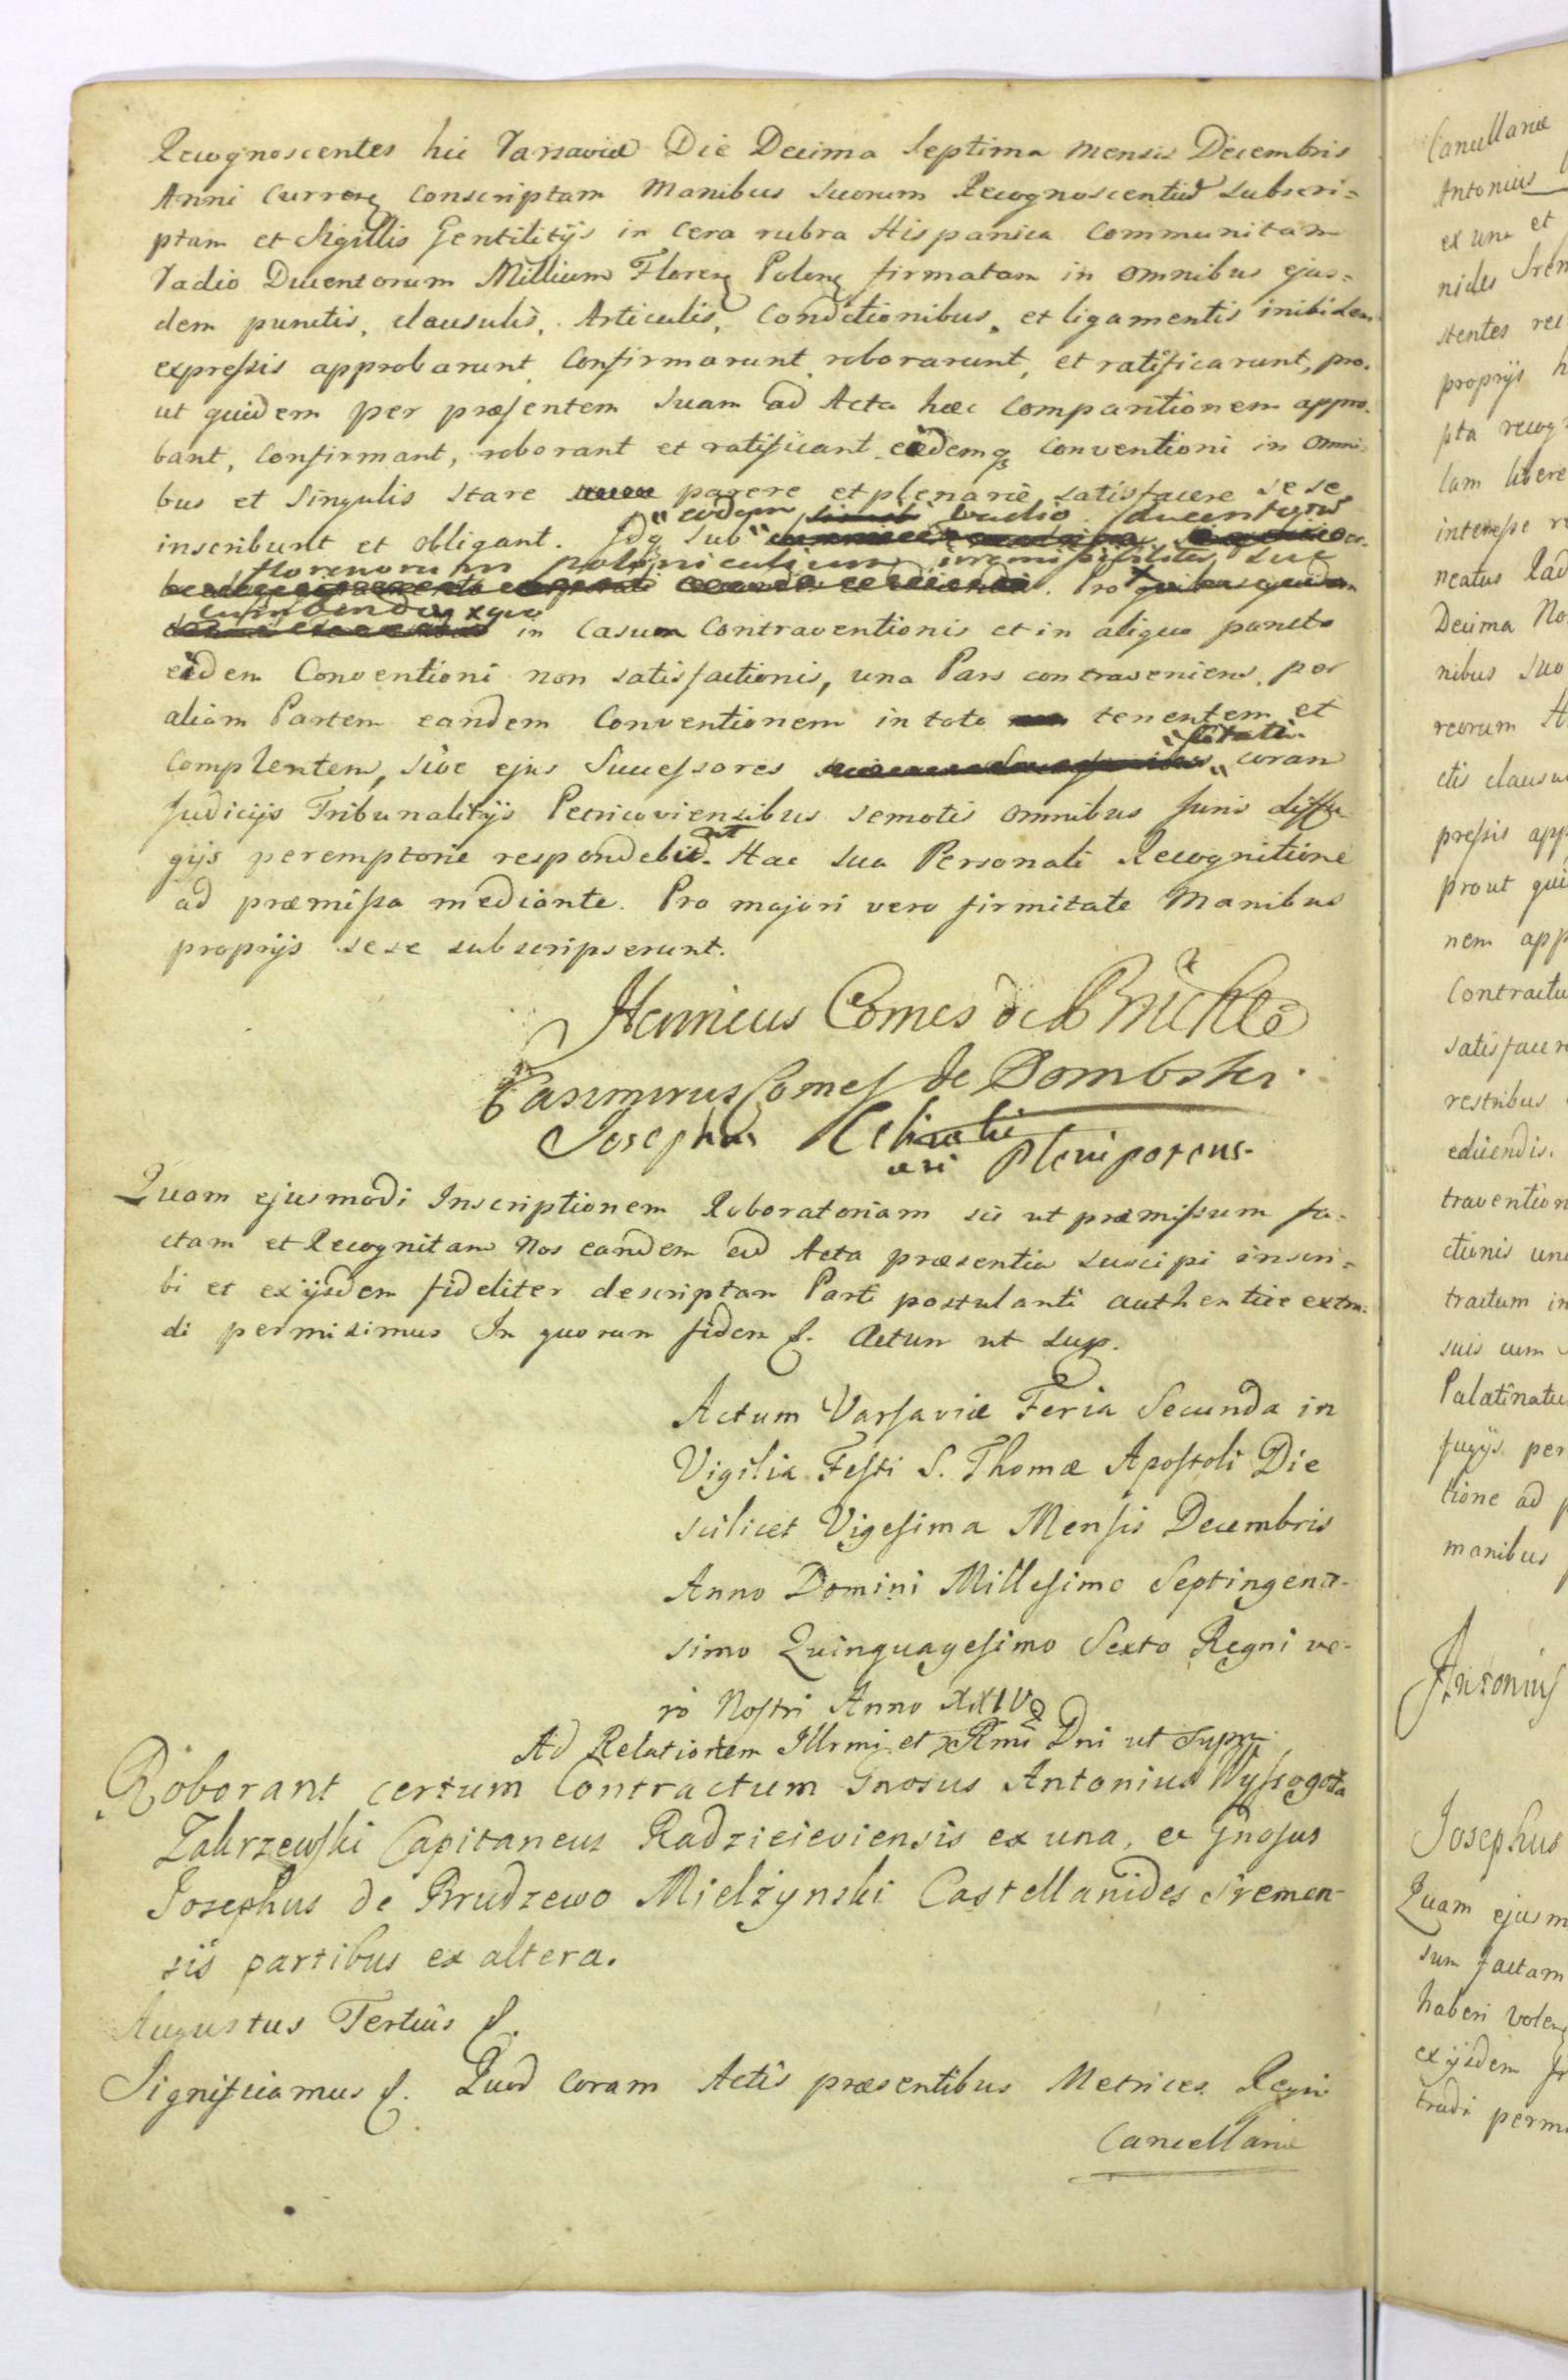 Recognoscentes hic Varsaviæ Die Decima Septima Mensis Decembris
Anni Curren conscriptam Manibus suorum Recognoscentiũ subscri=
ptam et Sigillis Gentilitijs in cera rubra Hispanica Communitam
Vadio Ducentorum Millium Floren Polon firmatam in omnibus ejus=
dem punctis, clausulis, Articulis, Conditionibus, et ligamentis inibidem
expressis approbarunt, Confirmarunt, roborarunt, et ratificarunt, pro.
ut quidem per præsentem suam ad Acta hæc comparitionem appro.
bant, Confirmant, roborant et ratificant eidemq; Conventioni in omni
bus et Singulis stare parere et plenarie satisfacere sese
inscribunt et obligant. Idq; sub eodem vadio ducentorum
florenorum polonicalium irremissibiliter luc
Pro
in Casum Contraventionis et in aliquo puncto
eidem Conventioni non satisfactionis, una Pars contraveniens, per
aliam Partem eandem Conventionem in toto tenentem et
Complentem, sive ejus Successores citati coram
Judicijs Tribunalitijs Petricoviensibus semotis omnibus Juris diffu
gijs peremptorie respondebit. Hac sua Personali Recognitione
ad præmissa mediante. Pro majori vero firmitate Manibus
proprijs sese subscripserunt.
Henricus Comes de Brühl
Casimirus Comes de Dombski
Josephus Plenipotens
Quam ejusmodi Inscriptionem Roboratoriam sic ut præmissum fa=
ctam et Recognitam Nos eandem ad Acta præsentia suscipi inscri=
bi et exijsdem fideliter descriptam Parti postulanti authentice extra.
di permisimus In quorum fidem &. Actum ut sup.
Actum Varsaviæ Feria Secunda in
Vigilia Festi S. Thomæ Apostoli Die
scilicet Vigesima Mensis Decembris
Anno Domini Millesimo Septingente-
simo Quinquagesimo Sexto Regni ve-
ro Nostri Anno XXIV
Ad Relationem Illrmi et Rmi Dni ut Supra
Roborant certum Contractum Gnosus Antonius Wyssogota
Zakrzewski Capitaneus Radzieieviensis ex una, et Gnosus
Josephus de Brudzewo Mielżynski Castellanides Sremen-
sis partibus ex altera.
Augustus Tertius &.
Significamus &. Quod coram Actis præsentibus Metrices Regni
Cancellariæ
Cancellariæ
Antonius
ex una et
nides Srem
stentes rec
proprijs h
pta recog
lam libere
interesse re
neatus Rad
Decima No
nibus suo
reorum H
ctis clausu
pressis app
prout qui
nem app
Contractu
satisfacere
restribus
edicendis.
traventio
ctionis una
tractum in
suis cum
Palatinatu
fugijs per
tione ad p
manibus p
Antonius
Josephus
Quam ejusm
sum factam
haberi volen
exijsdem
tradi permi